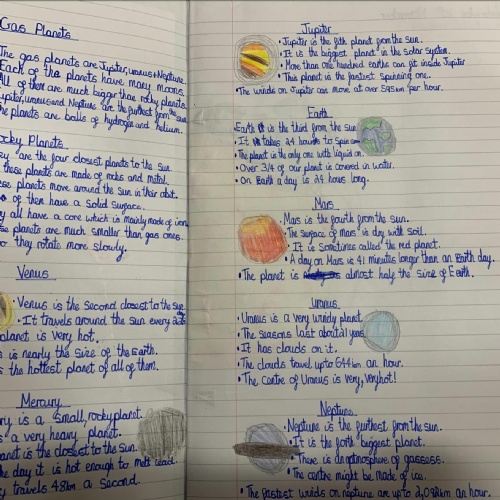 Gas Planets
The gas planets are Jupiter, Uranus + Neptune.
Each of the planets have many moons.
All of them are much bigger than rocky planets.
Jupiter, Uranus and Neptune are the furthest from the sun.
The planets are balls of hydrogen and helium.
Rocky Planets
They are the four closest planets to the sun.
these planets are made of rocks and metal.
these planets move around the sun in their orbit.
of them have a solid surface.
they all have a core which is mainly made of iron.
these planets are much smaller than gas ones.
they rotate more slowly.
Venus
• Venus is the second closest to the sun.
• It travels around the sun every
planet is very hot.
is nearly the size of the Earth.
is the hottest planet of all of them.
Mercury
is a small, rocky planet.
is a very heavy planet.
planet is the closest to the sun.
the day it is hot enough to melt lead.
travels 48km a second.
Jupiter
• Jupiter is the fith planet from the sun.
• It is the biggest planet in the solar system.
• More than one hundred earths can fit inside Jupiter
• This planet is the fastest spinning one.
• The winds on Jupiter can move at over 595km per hour.
Earth
• Earth is the third from the sun
• It takes 24 hours to spin
• The planet is the only one with liquid on.
• Over 3/4 of our planet is covered in water.
• On Earth a day is 24 hours long.
Mars
• Mars is the fourth from the sun.
• The surface of mars is dry with soil.
• It is sometimes called the red planet.
• A day on Mars is 41 minutes longer than an Earth day.
• The planet is almost half the size of Earth.
Uranus
• Uranus is a very windy planet.
• The seasons last about 21 years
• It has clouds on it.
• The clouds travel up to 644km an hour.
• The centre of Uranus is very, very hot!
Neptune
• Neptune is the furthest from the sun.
• It is the forth biggest planet.
• There is an atmosphere of gassess.
• The centre might be made of ice.
• The fastest winds on neptune are up to an hour.